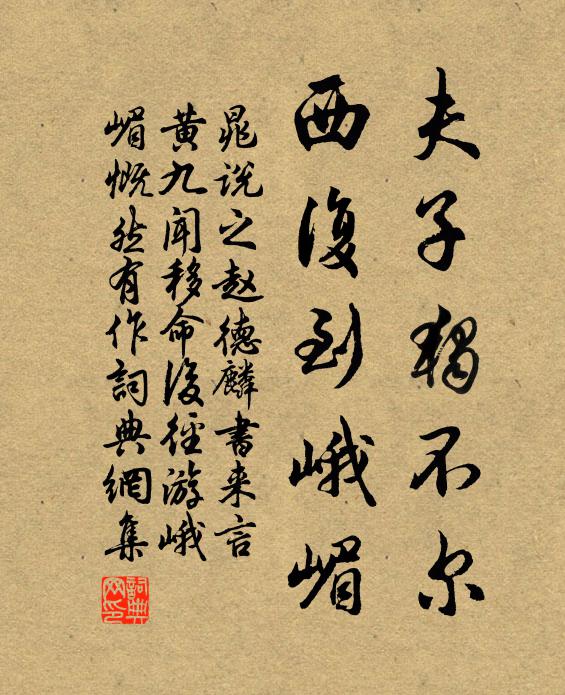 夫子獨不尔
西復到峨嵋
晁说之赵德麟書来言
黄九闻移命後径游峨
嵋慨然有作詞典網集
詞典网印